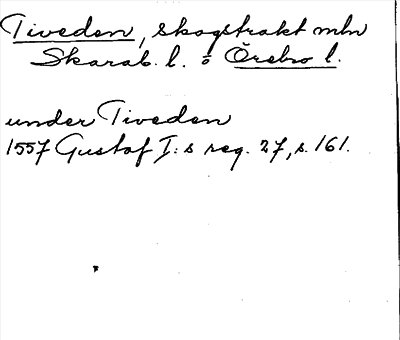 Tiveden, skogstrakt mln
Skarab. l. o Örebro l.
under Tiveden
1557 Gustaf I:s reg. 27, s. 161.